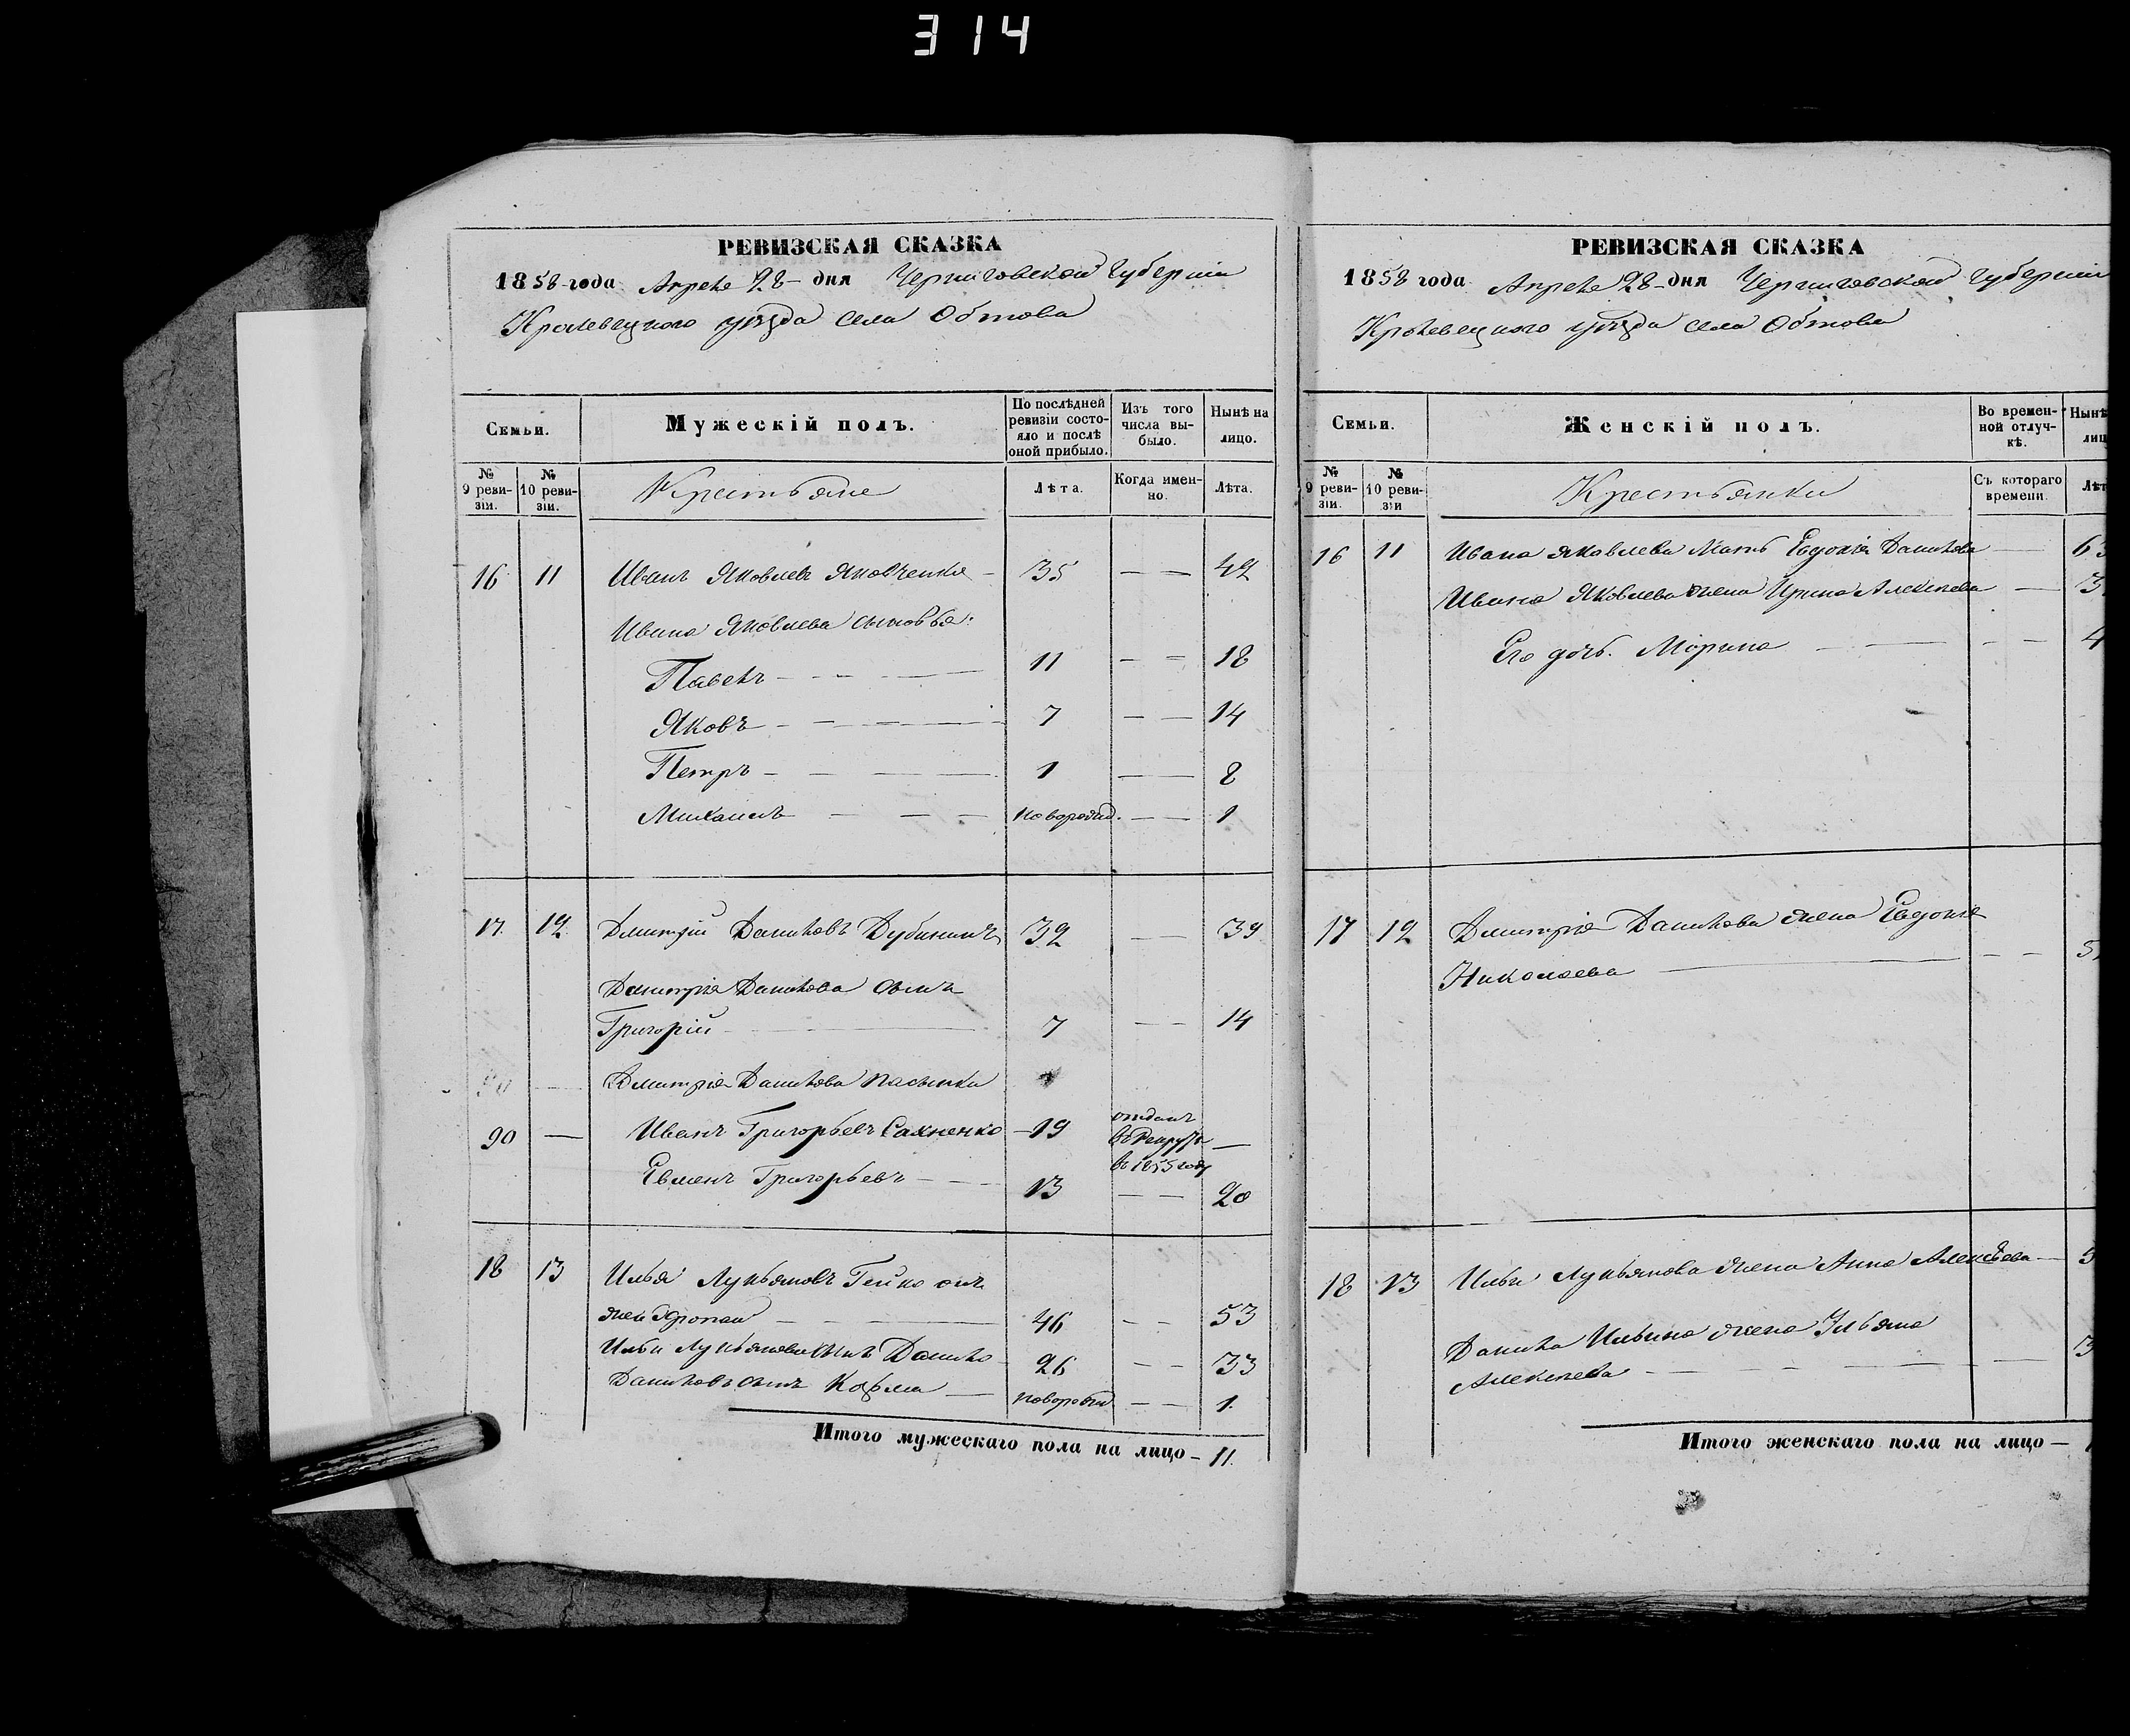 314
РЕВИЗСКАЯ СКАЗКА
1858 года Апреля 28 дня Черниговской Губерніи
Кролевецкого уѣзда села Обтова
Семьи.
Мужескій полъ.
По послѣдней ревизіи состояло и послѣ оной прибыло.
Изъ того числа выбыло.
Нынѣ на лицо.
№ 9 ревизіи.
№ 10 ревизіи.
Крестьяне
Лѣта.
Когда именно.
Лѣта.
16 11 Иванъ Яковлевъ Яковченко — 35 — — 42
Ивана Яковлева сыновья:
Павелъ — — — 11 — — 18
Яковъ — — — 7 — — 14
Петръ — — — 1 — — 8
Михаилъ — — — новорожд. — — 1
17. 12. Дмитрій Даниловъ Дубининъ 32 — — 39
Дмитрія Данилова сынъ
Григорій — 7 — — 14
90 —
Дмитрія Данилова пасынки
90 — Иванъ Григорьевъ Сахненко — 19 отданъ въ рекруты в 1855 году —
Евменъ Григорьевъ — — 13 — — 20
18 13 Илья Лукьяновъ Гейко онъ
же 46 — — 53
Ильи Лукьянова сынъ Данило 26 — — 33
Даниловъ сынъ Козьма — новорожд — — 1.
Итого мужескаго пола на лицо — 11.
РЕВИЗСКАЯ СКАЗКА
1858 года Апреля 28 дня Черниговской Губерніи
Кролевецкого уѣзда села Обтова
Семьи.
Женскій полъ.
Во временной отлучкѣ.
Нынѣ
лиц
№ 9 ревизіи.
№ 10 ревизіи
Крестьянки
Съ котораго времени.
Лѣт
16 11 Ивана Яковлева Мать Евдокія Данилова — 6
Ивана Яковлева жена Ирина Алексѣева — 3
Его дочь. Морина — — — 4
17 12 Дмитрія Данилова жена Евдокія
Николаева — — — 5
18 13 Ильи Лукьянова жена Анна Алексѣева — 5
Данила Ильина жена Ульяна
Алексѣева — — — 3
Итого женскаго пола на лицо —